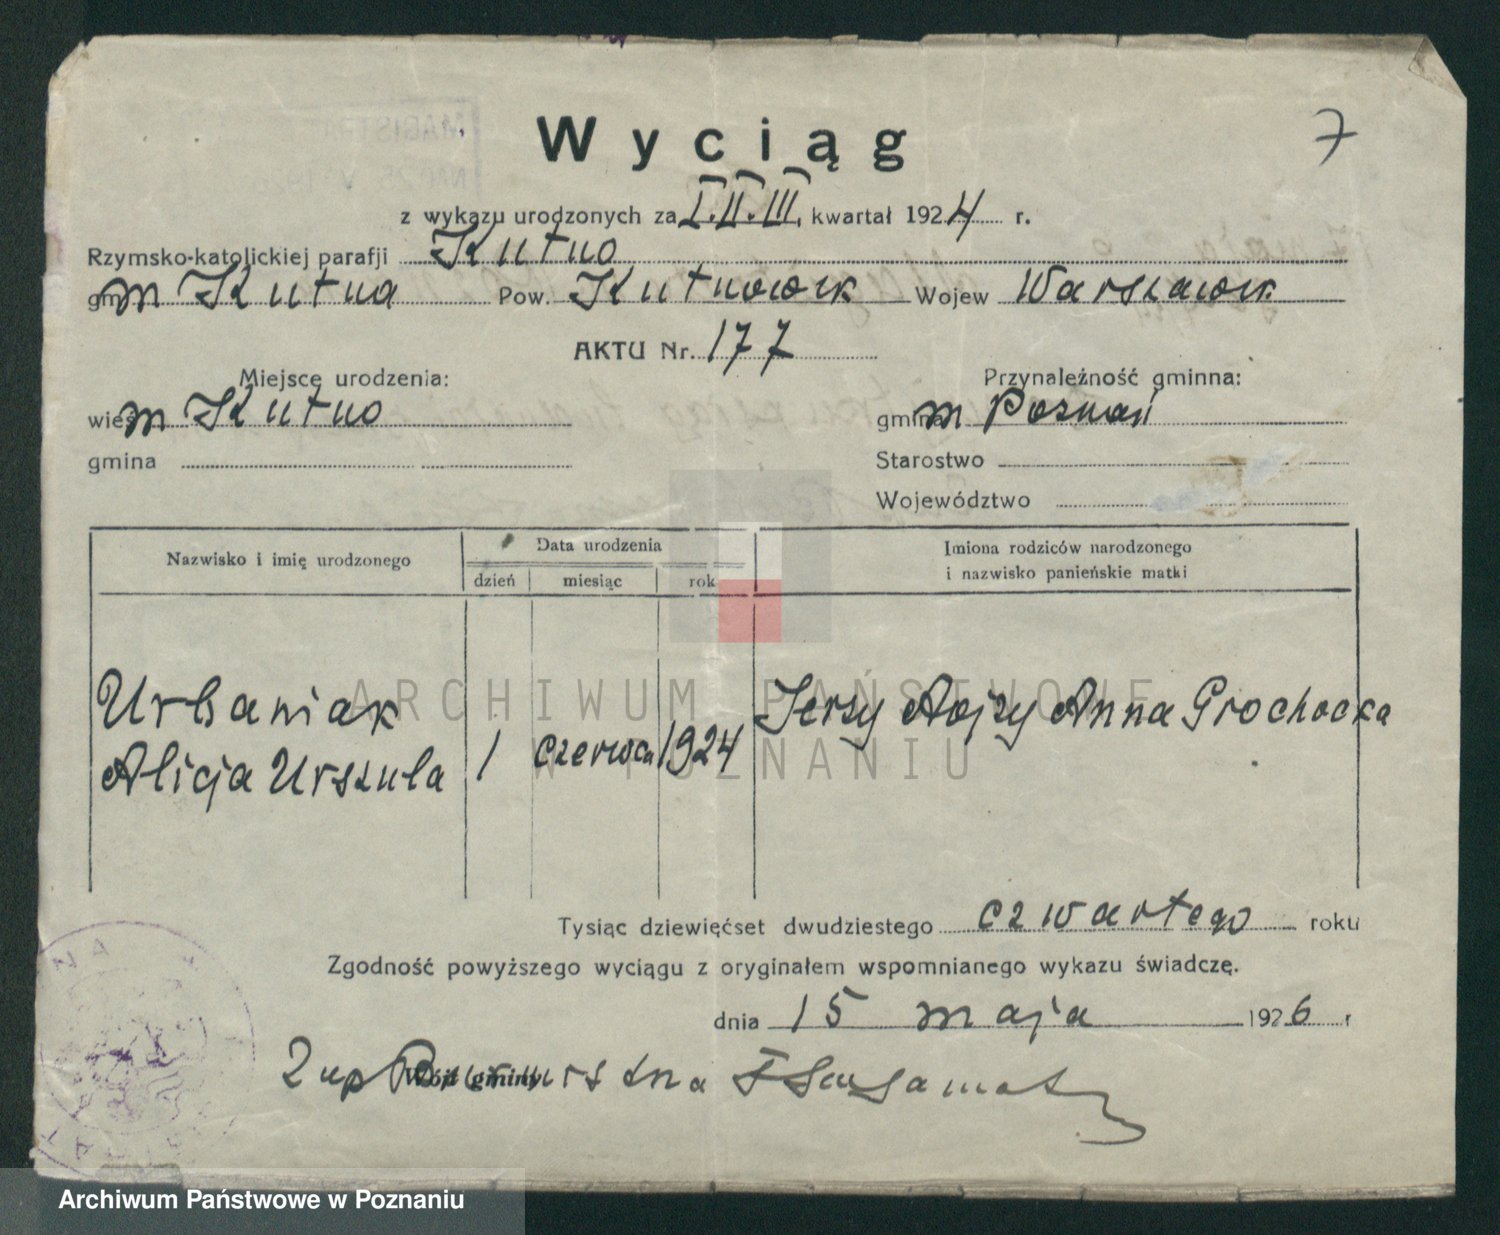 7
Wyciąg
z wykazu urodzonych za I. II. III. kwartał 1924 r.
Rzymsko-katolickiej parafji Kutno
m Kutna Pow. Kutnowsk Wojew Warszawsk
AKTU Nr. 177
Miejsce urodzenia: Przynależność gminna:
wieś m Kutno gmina m Poznań
gmina Starostwo
Województwo
Nazwisko i imię urodzonego Data urodzenia Imiona rodziców narodzonego
dzień miesiąc rok i nazwisko panieńskie matki
Urbaniak Jerzy Anna Grochocka
Alicja Urszula 1 czerwca 1924
ARCHIWUM PAŃSTWOWE
W POZNANIU
Tysiąc dziewięćset dwudziestego czwartego roku
Zgodność powyższego wyciągu z oryginałem wspomnianego wykazu świadczę.
dnia 15 maja 1926 r
Wójt gminy
Archiwum Państwowe w Poznaniu